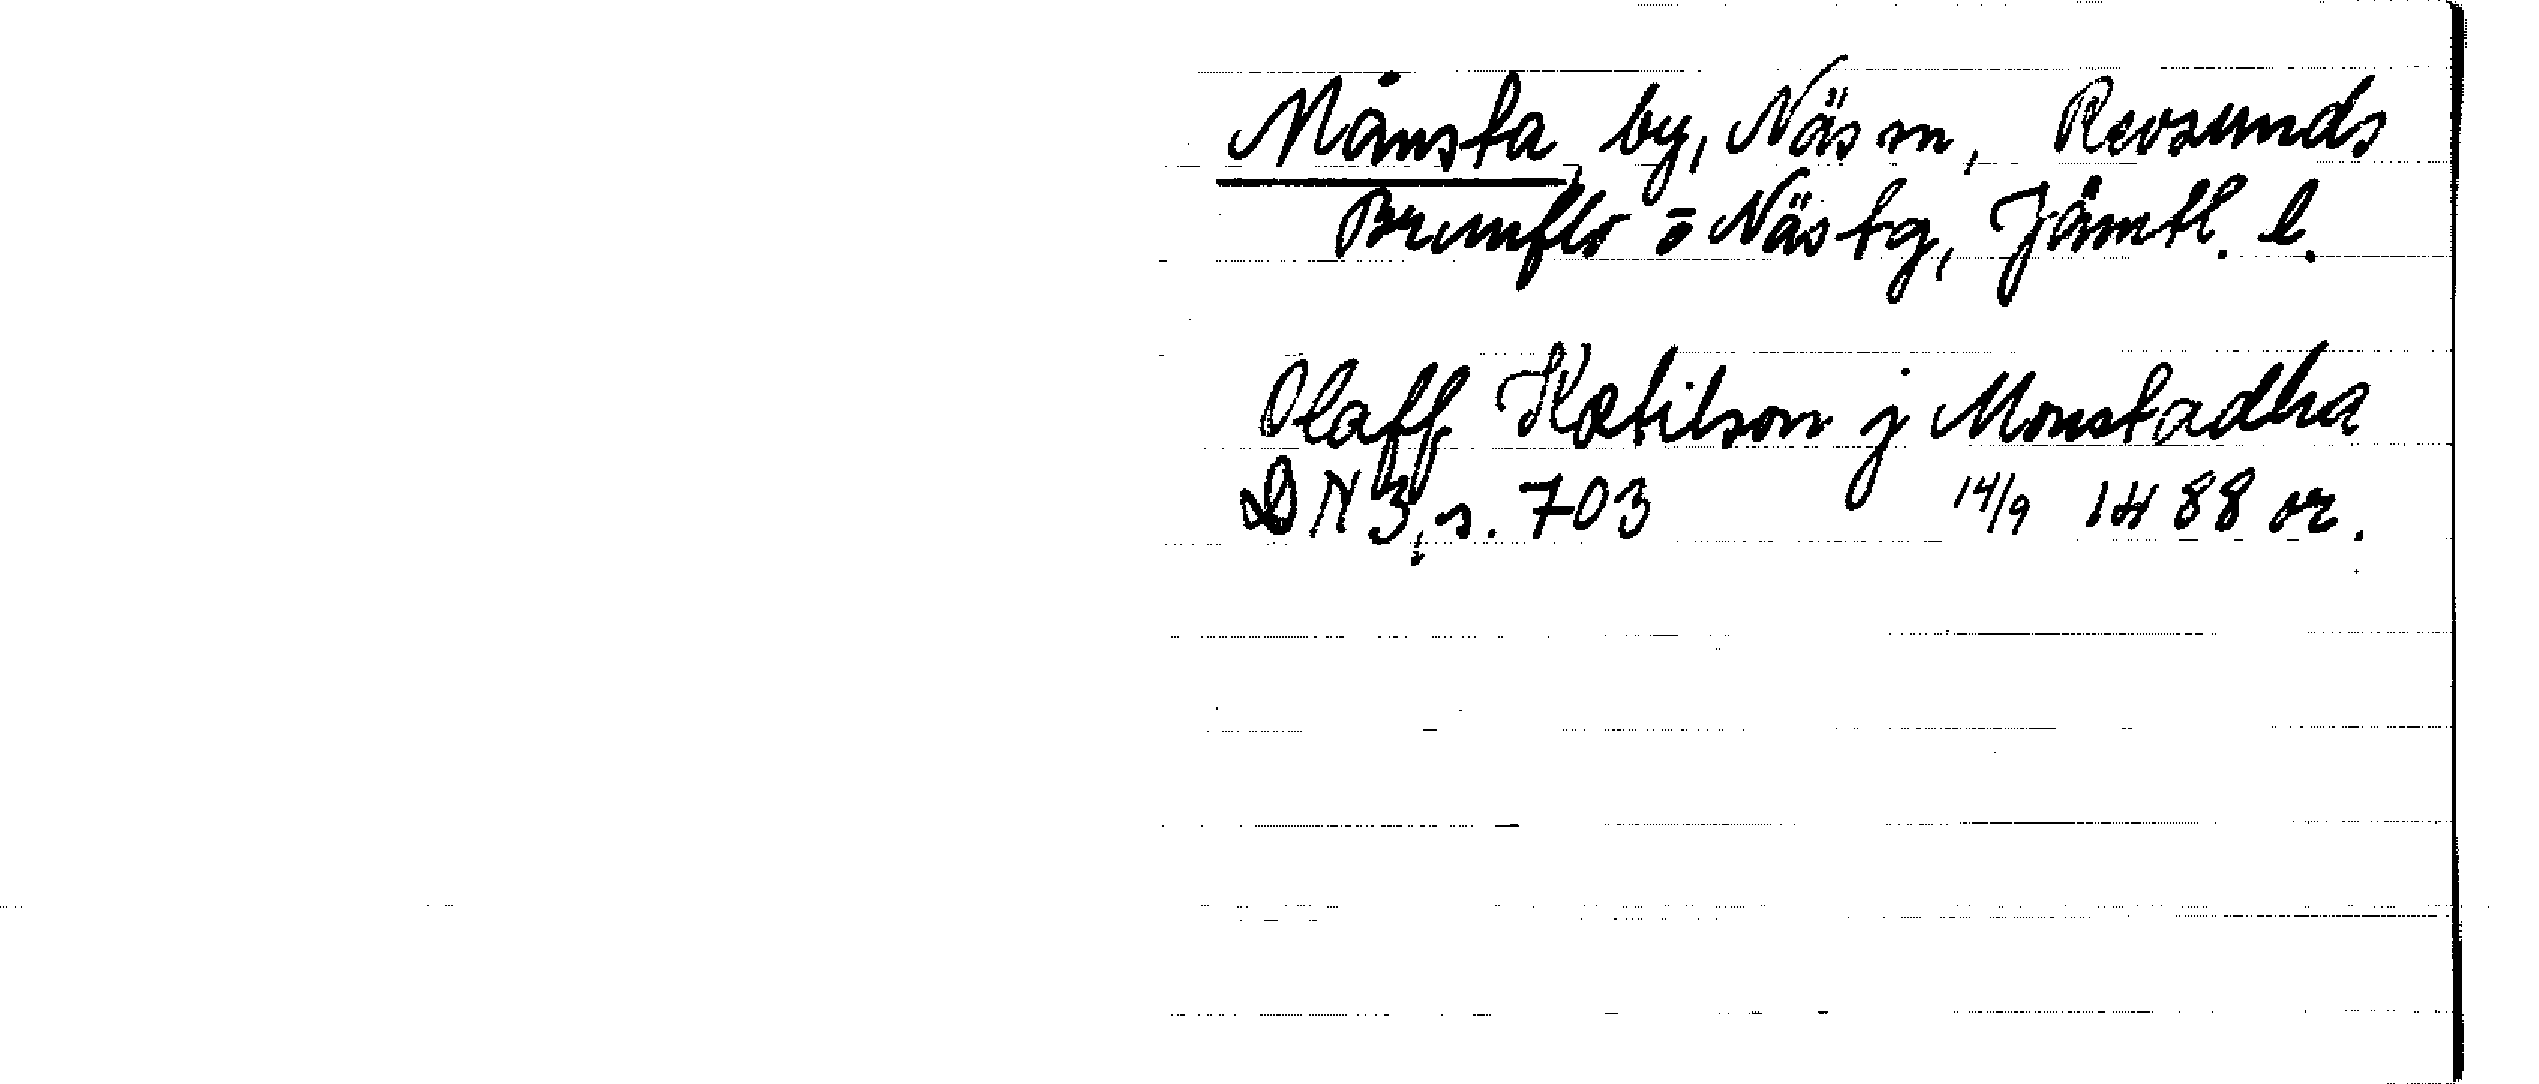 Månsta, by, Näs sn, Revsunds
Brunflo o Näs tg, Jämtl. l.
Olaff Kætilson j Monstadha
DN 3, s. 703 14/9 1488 or.